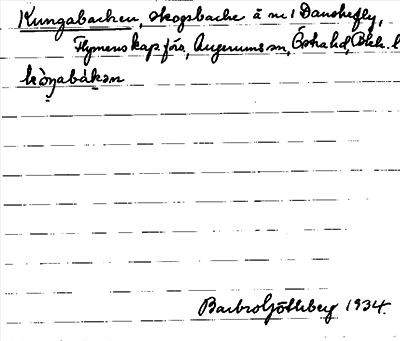 Kungabacken, skogsbacke å nr 1 Danskefly,
Flymens kapförs, Augerums sn, Östra hd, Blek. l
kòŋabàkən
Barbro Götheberg 1934.